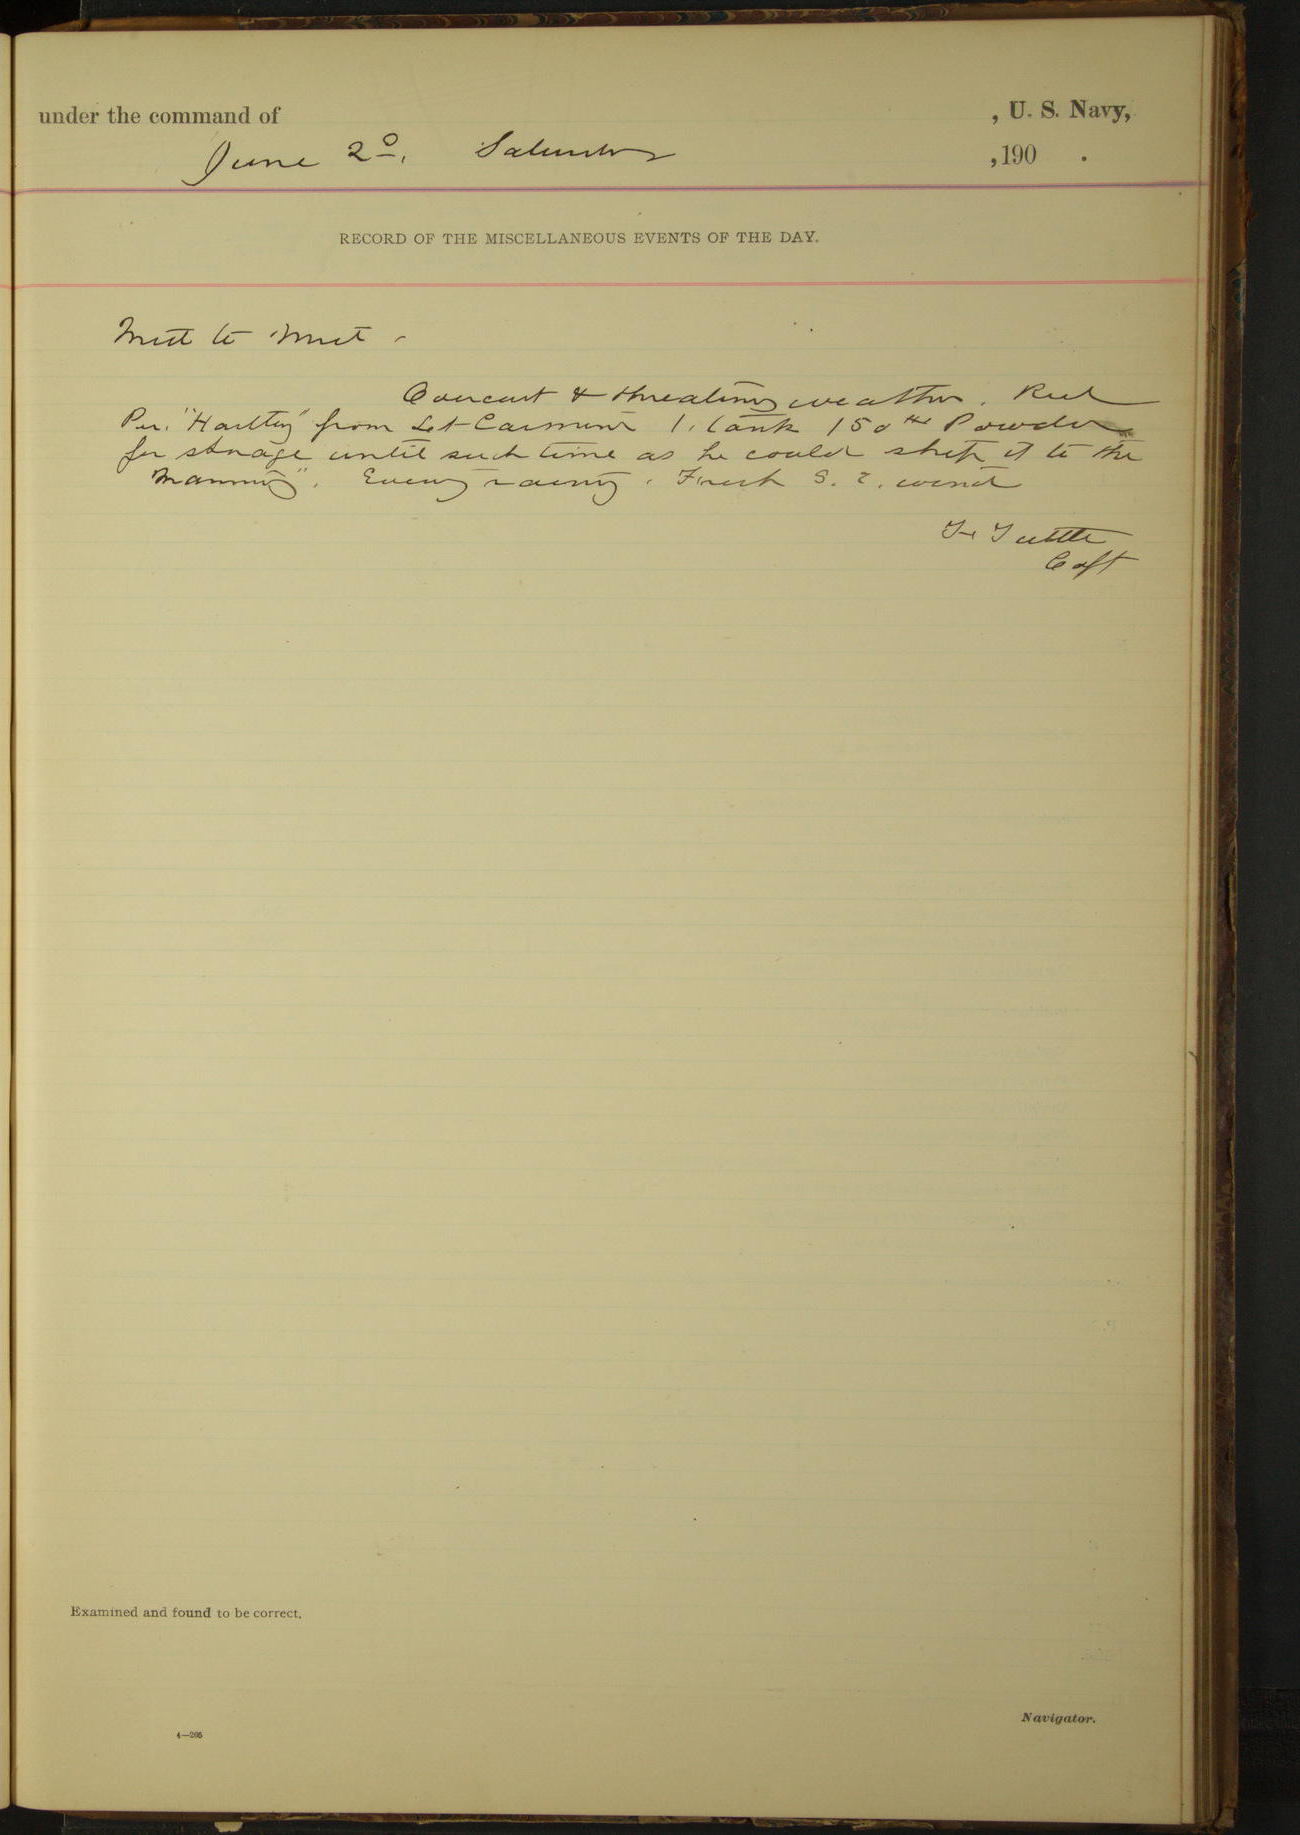 under the command of , U. S. Navy,
June 2º, Saturday ,190 .
RECORD OF THE MISCELLANEOUS EVENTS OF THE DAY.
Mid to Mid -
Overcast & threatning weather. Recd
Per. "Hartley" from Lt Carmine 1. tank 150 lbs Powder
for storage until such time as he could ship it to the
Manning". Eveng rainy. Fresh S. E. wind
F Tuttle
Capt
Examined and found to be correct.
4—205
Navigator.